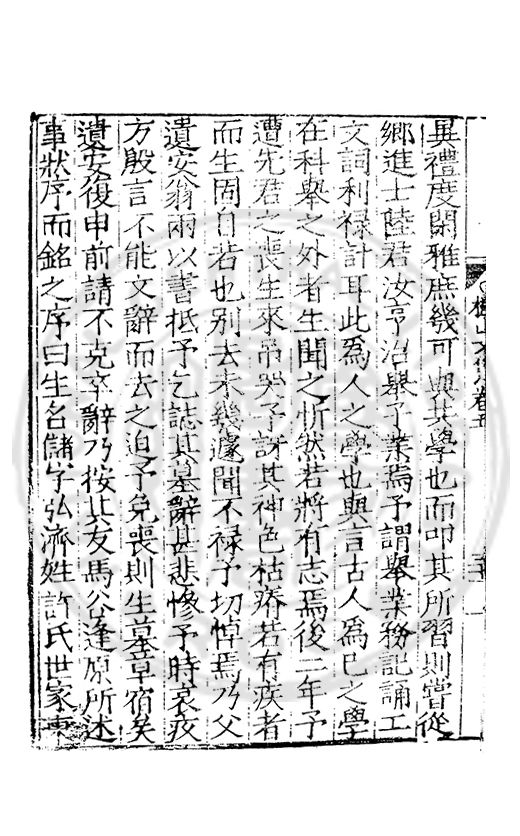 異禮度閑雅庶幾可與共學也而叩其所習則嘗從
鄉進士陸君汝亨治舉子業焉予謂舉業務記誦工
文詞利祿計耳此為人之學也與言古人為己之學
在科舉之外者生聞之忻然若將有志焉後二年予
遭先君之喪生來吊哭予訝其神色枯瘠若有疾者
而生固自若也別去未幾遽聞不祿予切悼焉乃父
遺安翁兩以書抵予乞誌其墓辭甚悲慘予時哀疚
方殷言不能文辭而去之迨予免喪則生墓草宿矣
遺安復申前請不克卒辭乃按其友馬公逢原所述
事狀序而銘之序曰生名儲字弘濟姓許氏世家東
山文集卷五